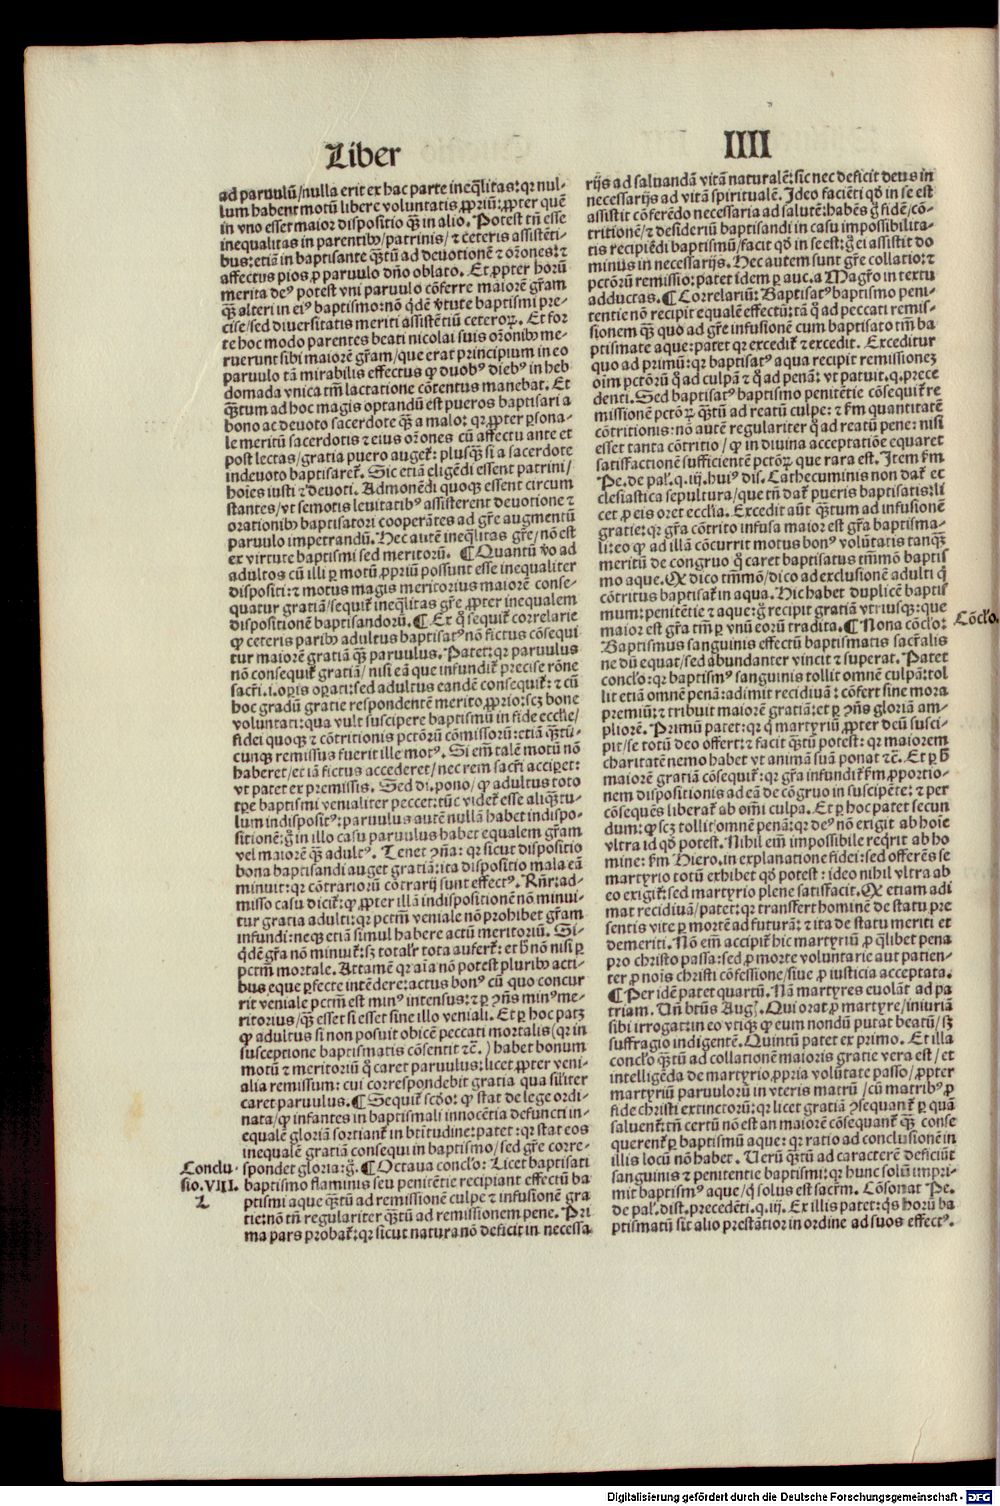 Liber
IIII
ad paruulū/nulla erit ex hac parte ineq̄litas: qꝛ nul-
lum habent motū libere voluntatis ꝓpriū: ꝓpter quē
in vno esset maior dispositio q̄ꝫ in alio. Potest tn̄ esse
inequalitas in parentibꝰ/patrinis/ ⁊ ceteris assistēti-
bus: etiā in baptisante q̄ꝫtū ad deuotionē ⁊ orōnes: ⁊
affectus pios ꝓ paruulo dn̄o oblato. Et ꝓpter horū
merita deꝰ potest vni paruulo cōferre maiorē gr̄am
q̄ꝫ alteri in eiꝰ baptismo: nō q̄dē v̓tute baptismi pre-
cise/sed diuersitatis meriti assistētiū ceteroꝝ. Et for
te hoc modo parentes beati nicolai suis orōnibꝰ me-
ruerunt sibi maiorē gr̄am/que erat principium in eo
paruulo tā mirabilis effectus ꝙ duobꝰ diebꝰ in heb
domada vnica tm̄ lactatione cōtentus manebat. Et
q̄ꝫtum ad hoc magis optandū est pueros baptisari a
bono ac deuoto sacerdote q̄ꝫ a malo: qꝛ ꝓpter ꝑsona-
le meritū sacerdotis ⁊ eius orōnes cū affectu ante et
post lectas/gratia puero augeƭ: plusq̄ꝫ si a sacerdote
indeuoto baptisareƭ. Sic etiā eligēdi essent patrini/
hoīes iusti ⁊ deuoti. Admonēdi quoqꝫ essent circum
stantes/vt semotis leuitatibꝰ assisterent deuotione ⁊
orationibꝰ baptisatori cooperātes ad gr̄e augmentū
paruulo impetrandū. Hec autē ineq̄litas gr̄e/nō est
ex virtute baptismi sed meritorū. ¶ Quantū v̓o ad
adultos cū illi ꝑ motū ꝓpriū possunt esse inequaliter
dispositi: ⁊ motus magis meritorius maiorē conse-
quatur gratiā/sequiƭ ineq̄litas gr̄e ꝓpter inequalem
dispositionē baptisandorū. ¶ Ex q̄ sequiƭ correlarie
ꝙ ceteris paribꝰ adultus baptisatꝰ nō fictus cōsequi
tur maiorē gratiā q̄ꝫ paruulus. Patet: qꝛ paruulus
nō consequiƭ gratiā/ nisi eā que infundiƭ precise rōne
sacr̄i.i.oꝑis oꝑati: sed adultus eandē consequiƭ: ⁊ cū
hoc gradū gratie respondentē merito ꝓprio: scꝫ bone
voluntati: qua vult suscipere baptismū in fide eccłie/
fidei quoqꝫ ⁊ cōtritionis pctōrū cōmissorū: etiā q̄ꝫtū-
cunqꝫ remissus fuerit ille motꝰ. Si em̄ talē motū nō
haberet/et iā fictus accederet/nec rem sacr̄i acciꝑet:
vt patet ex premissis. Sed dispono/ ꝙ adultus toto
tꝑe baptismi venialiter peccet: tūc videƭ esse aliq̄ꝫtu-
lum indispositꝰ: paruulus autē nullā habet indispo-
sitionē: g̊ in illo casu paruulus habet equalem gr̄am
vel maiorē q̄ꝫ adultꝰ. Tenet ↄ̄na: qꝛ sicut dispositio
bona baptisandi auget gratiā: ita dispositio mala eā
minuit: qꝛ cōtrariorū cōtrarij sunt effectꝰ. Rn̄r: ad-
misso casu diciƭ: ꝙ ꝓpter illā indispositionē nō minui-
tur gratia adulti: qꝛ pctm̄ veniale nō prohibet gr̄am
infundi: neqꝫ etiā simul habere actū meritoriū. Si-
q̄dē gr̄a nō minuiƭ: sꝫ totaliƭ tota auferƭ: et h̄ nō nisi ꝑ
pctm̄ mortale. Attamē qꝛ aīa nō potest pluribꝰ acti-
bus eque ꝑfecte intēdere: actus bonꝰ cū quo concur
rit veniale pctm̄ est minꝰ intensus: ⁊ ꝑ ↄ̄ns minꝰ me-
ritorius/q̄ꝫ esset si esset sine illo veniali. Et ꝑ hoc patꝫ
ꝙ adultus si non posuit obicē peccati mortalis (qꝛ in
susceptione baptismatis cōsentit ⁊c̄.) habet bonum
motū ⁊ meritoriū q̊ caret paruulus: licet ꝓpter veni-
alia remissum: cui correspondebit gratia qua siłiter
caret paruulus. ¶ Sequiƭ scd̊o: ꝙ stat de lege ordi-
nata/ꝙ infantes in baptismali innocētia defuncti in-
equalē gloriā sortianƭ in btītudine: patet: qꝛ stat eos
inequalē gratiā consequi in baptismo/sed gr̄e corre-
spondet gloria: g̊. ¶ Octaua concło: Licet baptisati
baptismo flaminis seu penitētie recipiant effectū ba
ptismi aque q̄ꝫtū ad remissionē culpe ⁊ infusionē gra
tie: nō tn̄ regulariter q̄ꝫtū ad remissionem pene. Pri
ma pars probaƭ: qꝛ sicut natura nō deficit in necessa
Conclu-
sio.VIII.
⁊
rijs ad saluandā vitā naturalē: sic nec deficit deus in
necessarijs ad vitā spiritualē. Ideo faciēti qd̊ in se est
assistit cōferēdo necessaria ad salutē: habēs g̊ fidē/cō-
tritionē/ ⁊ desideriū baptisandi in casu impossibilita-
tis recipiēdi baptismū/facit qd̊ in se est: g̊ ei assistit do
minus in necessarijs. Hec autem sunt gr̄e collatio: ⁊
pctōrū remissio: patet idem ꝑ auc.a Magr̄o in textu
adductas. ¶ Correlariū: Baptisatꝰ baptismo peni-
tentie nō recipit equalē effectū: tā q̊ ad peccati remis-
sionem q̄ꝫ quo ad gr̄e infusionē cum baptisato tm̄ ba
ptismate aque: patet qꝛ excediƭ ⁊ excedit. Exceditur
quo ad primū: qꝛ baptisatꝰ aqua recipit remissioneꝫ
oīm pctōrū q̊ ad culpā ⁊ q̊ ad penā: vt patuit.q.prece
denti. Sed baptisatꝰ baptismo penitētie cōsequiƭ re
missionē pctōꝝ q̄ꝫtū ad reatū culpe: ⁊ fm̄ quantitatē
cōtritionis: nō autē regulariter q̊ ad reatū pene: nisi
esset tanta cōtritio/ ꝙ in diuina acceptatiōe equaret
satisfactionē sufficientē pctōꝝ que rara est. Item fm̄
Pe. de pal̕.q.iij.huiꝰ dis. Cathecuminis non daƭ ec
clesiastica sepultura/que tn̄ daƭ pueris baptisatis: li
cet ꝓ eis oret eccłia. Excedit aūt q̄ꝫtum ad infusionē
gratie: qꝛ gr̄a cōtrito infusa maior est gr̄a baptisma-
li: eo ꝙ ad illā cōcurrit motus bonꝰ volūtatis tanqꝫ
meritū de congruo q̊ caret baptisatus tm̄mō baptis
mo aque. Qd̓ dico tm̄mō/dico ad exclusionē adulti q̄
cōtritus baptisaƭ in aqua. Hic habet duplicē baptis
mum: penitētie ⁊ aque: g̊ recipit gratiā vtriusqꝫ: que
maior est gr̄a tm̄ ꝑ vnū eorū tradita. ¶ Nona cōcło:
Baptismus sanguinis effectū baptismatis sacr̄alis
ne dū equat/sed abundanter vincit ⁊ superat. Patet
concło: qꝛ baptismꝰ sanguinis tollit omnē culpā: tol
lit etiā omnē penā: adimit recidiuā: cōfert sine mora
premiū: ⁊ tribuit maiorē gratiā: et ꝑ ↄ̄ns gloriā am-
pliorē. Primū patet: qꝛ q̄ martyriū ꝓpter deū susci-
pit/se totū deo offert: ⁊ facit q̄ꝫtū potest: qꝛ maiorem
charitatē nemo habet vt animā suā ponat ⁊c̄. Et ꝑ h̄
maiorē gratiā cōsequiƭ: qꝛ gr̄a infundiƭ fm̄ ꝓportio-
nem dispositionis ad eā de cōgruo in suscipiēte: ⁊ per
cōsequēs liberaƭ ab om̄i culpa. Et ꝑ hoc patet secun
dum: ꝙ scꝫ tollit omnē penā: qꝛ deꝰ nō exigit ab hoīe
vltra id qd̊ potest. Nihil em̄ impossibile req̄rit ab ho
mine: fm̄ Hiero.in explanatione fidei: sed offerēs se
martyrio totū exhibet qd̊ potest: ideo nihil vltra ab
eo exigiƭ: sed martyrio plene satisfacit. Qd̓ etiam adi
mat recidiuā/patet: qꝛ transfert hominē de statu pre
sentis vite ꝑ mortē ad futurā: ⁊ ita de statu meriti et
demeriti. Nō em̄ accipiƭ hic martyriū ꝓ q̄libet pena
pro christo passa: sed ꝓ morte voluntarie aut patien-
ter ꝓ noīs christi cōfessione/siue ꝓ iusticia acceptata.
¶ Per idē patet quartū. Nā martyres euolāt ad pa
triam. Vn̄ btūs Aug̕. Qui orat ꝓ martyre/iniuriā
sibi irrogat: in eo vtiqꝫ ꝙ eum nondū putat beatū/sꝫ
suffragio indigentē. Quintū patet ex primo. Et illa
concło q̄ꝫtū ad collationē maioris gratie vera est/et
intelligēda de martyrio ꝓpria volūtate passo/ꝓpter
martyriū paruulorū in vteris matrū /cū matribꝰ ꝓ
fide christi extinctorū: qꝛ licet gratiā ↄsequanƭ ꝑ quā
saluenƭ: tn̄ certū nō est an maiorē cōsequanƭ q̄ꝫ conse
querenƭ ꝑ baptismū aque: qꝛ ratio ad conclusionē in
illis locū nō habet. Verū q̄ꝫtū ad caracterē deficiūt
sanguinis ⁊ penitentie baptismi: qꝛ hunc solū impri-
mit baptismꝰ aque/q̄ solus est sacr̄m. Cōsonat Pe.
de pal̕.dist.precedēti.q.iij. Ex illis patet: q̄s horū ba
ptismatū sit alio prestātior in ordine ad suos effectꝰ.
Cōcło.
Digitalisierung gefördert durch die Deutsche Forschungsgemeinschaft - DFG